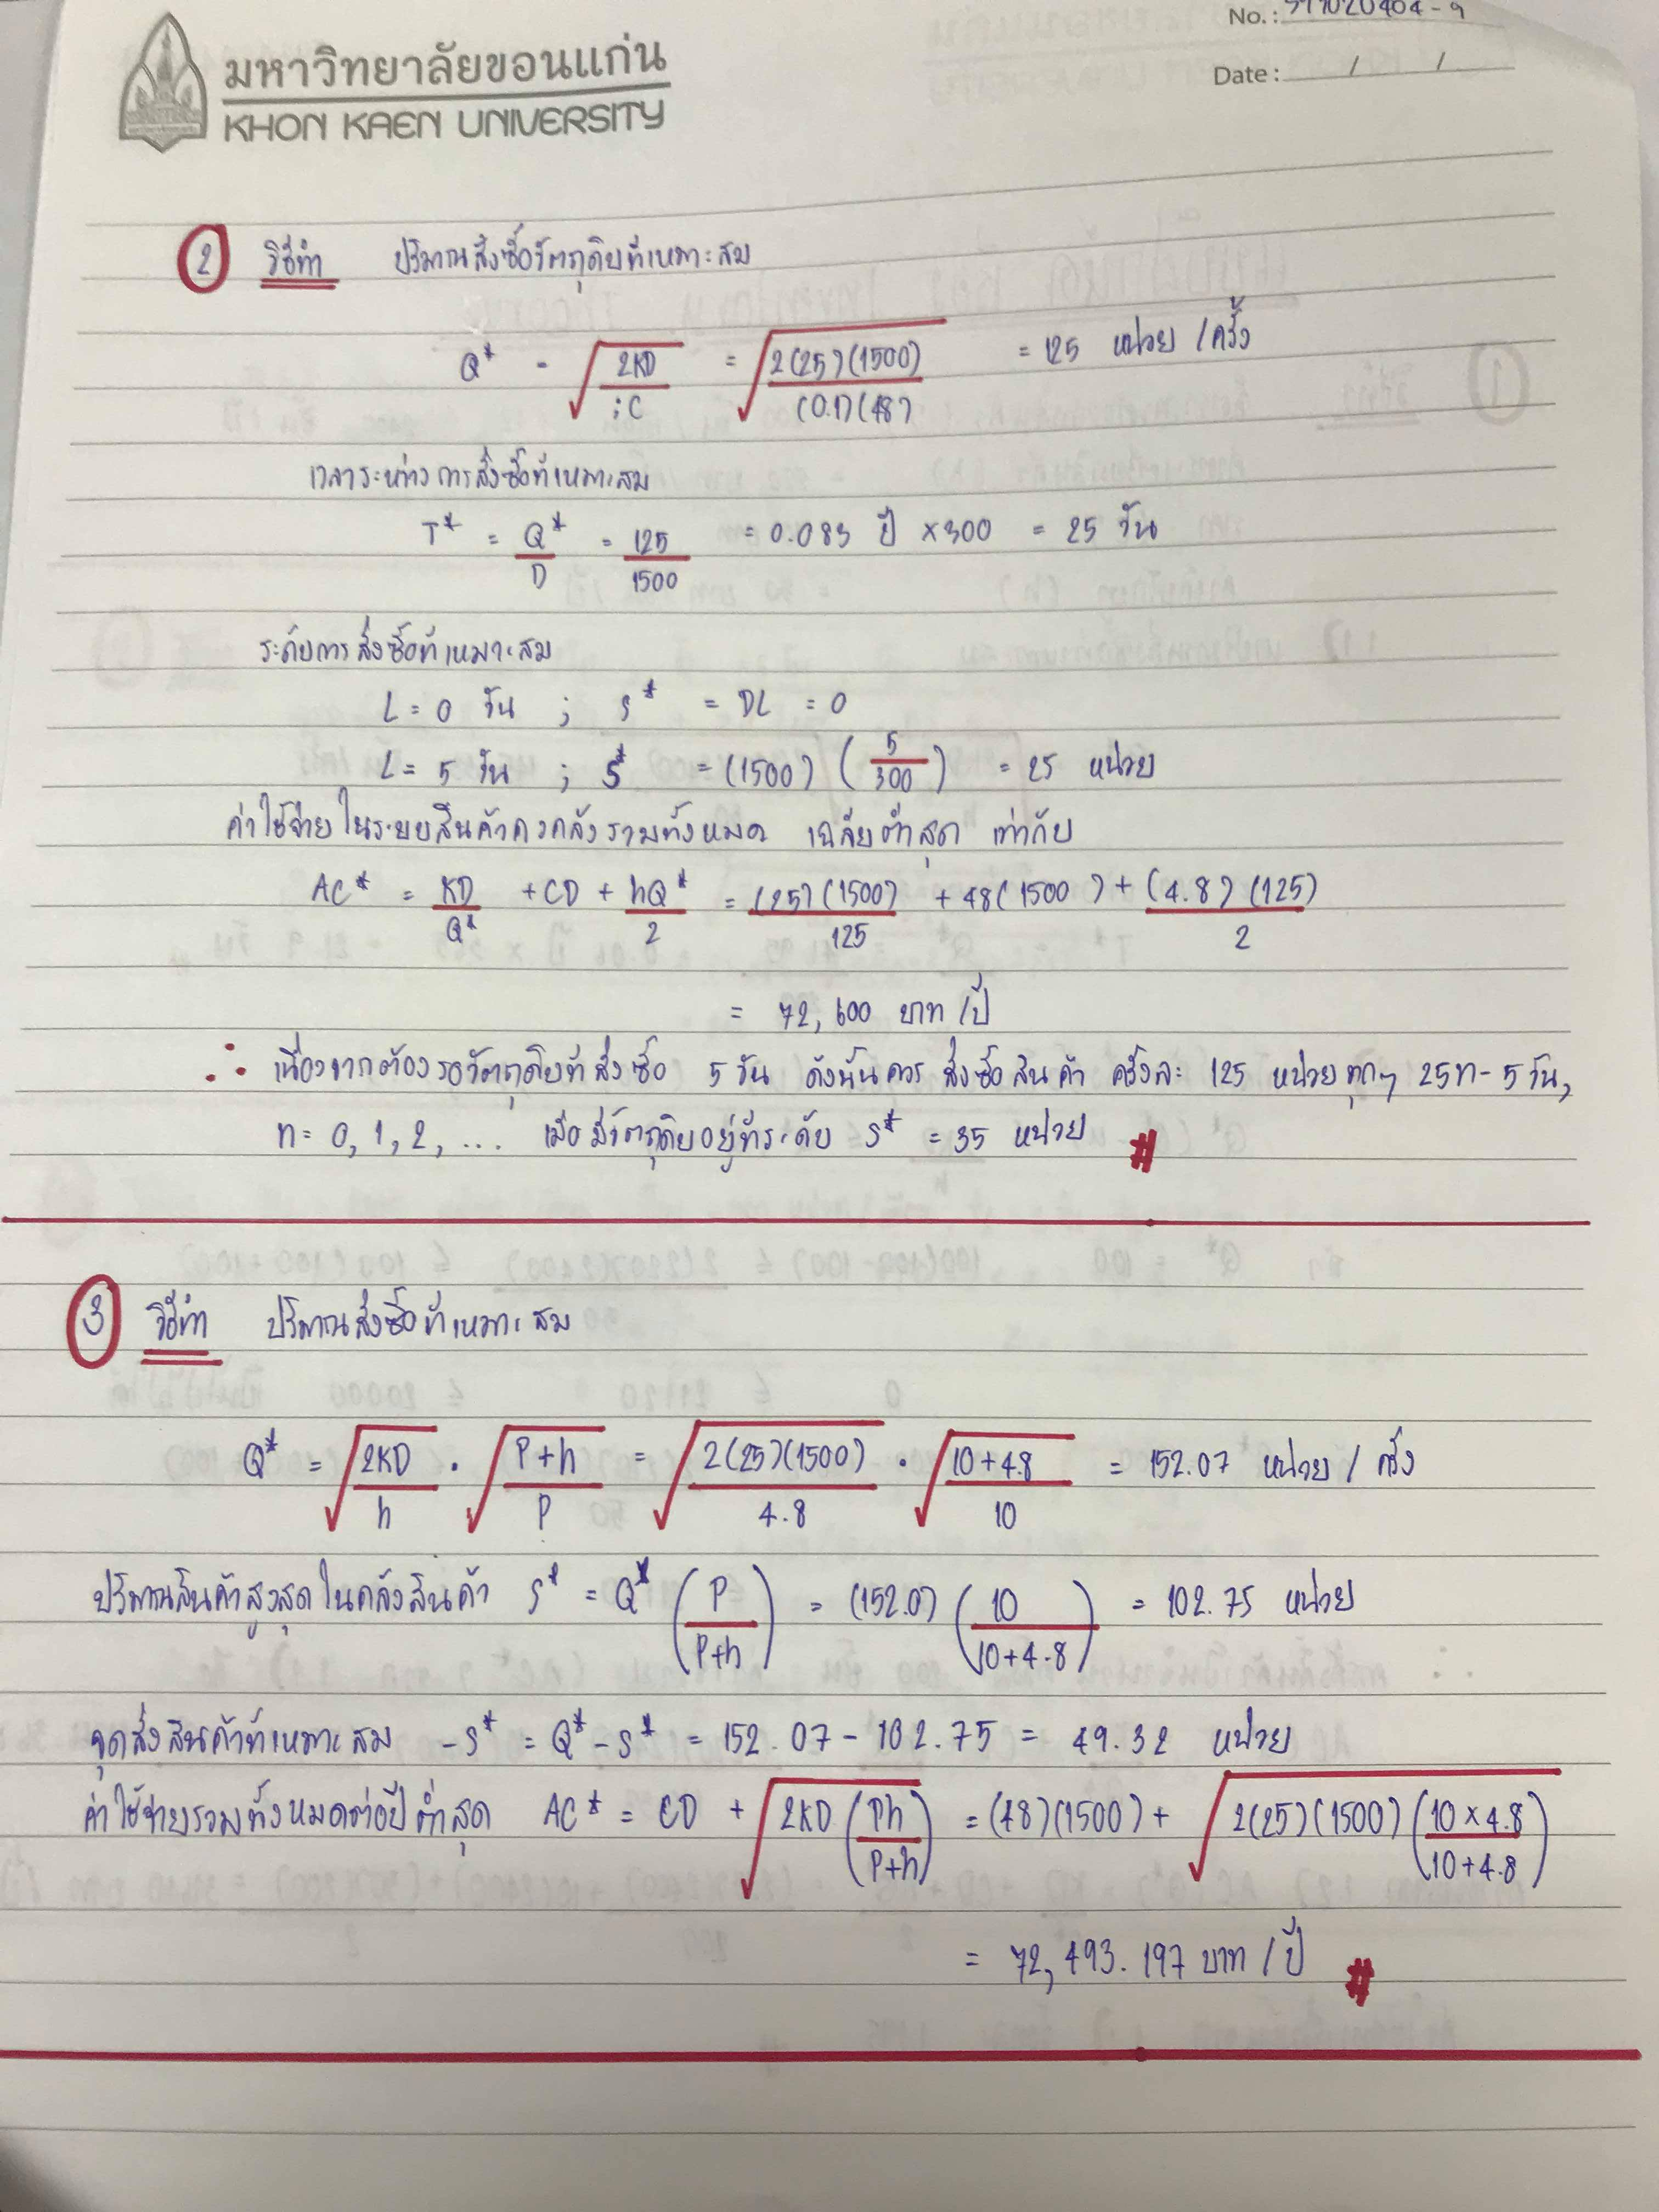 มหาวิทยาลัยขอนแก่น
KHON KAEN UNIVERSITY
No. :
Date : / /
2 วิธีทำ ปริมาณสั่งซื้อวัตถุดิบที่เหมาะสม
Q* = √(2KD / iC) = √(2(25)(1500) / (0.1)(48)) = 125 หน่วย / ครั้ง
เวลาระหว่างการสั่งซื้อที่เหมาะสม
T* = Q* / D = 125 / 1500 = 0.083 ปี × 300 = 25 วัน
ระดับการสั่งซื้อที่เหมาะสม
L = 0 วัน ; s* = DL = 0
L = 5 วัน ; s* = (1500) (5 / 300) = 25 หน่วย
ค่าใช้จ่ายในระบบสินค้าคงคลังรวมทั้งหมด เฉลี่ยต่ำสุด เท่ากับ
AC* = KD / Q* + CD + hQ* / 2 = (25)(1500) / 125 + 48(1500) + (4.8)(125) / 2
= 72,600 บาท / ปี
∴ เนื่องจากต้องรอวัตถุดิบที่สั่งซื้อ 5 วัน ดังนั้นควร สั่งซื้อสินค้า ครั้งละ 125 หน่วยทุกๆ 25n - 5 วัน,
n = 0, 1, 2, ... เมื่อมีวัตถุดิบอยู่ที่ระดับ s* = 35 หน่วย #
3 วิธีทำ ปริมาณสั่งซื้อที่เหมาะสม
Q* = √(2KD / h) · √(P+h / P) = √(2(25)(1500) / 4.8) · √(10+4.8 / 10) = 152.07 หน่วย / ครั้ง
ปริมาณสินค้าสูงสุดในคลังสินค้า S* = Q* (P / P+h) = (152.07) (10 / 10+4.8) = 102.75 หน่วย
จุดสั่งสินค้าที่เหมาะสม -s* = Q* - S* = 152.07 - 102.75 = 49.32 หน่วย
ค่าใช้จ่ายรวมทั้งหมดต่อปีต่ำสุด AC* = CD + √(2KD (Ph / P+h)) = (48)(1500) + √(2(25)(1500) (10 × 4.8 / 10+4.8))
= 72,493.197 บาท / ปี #